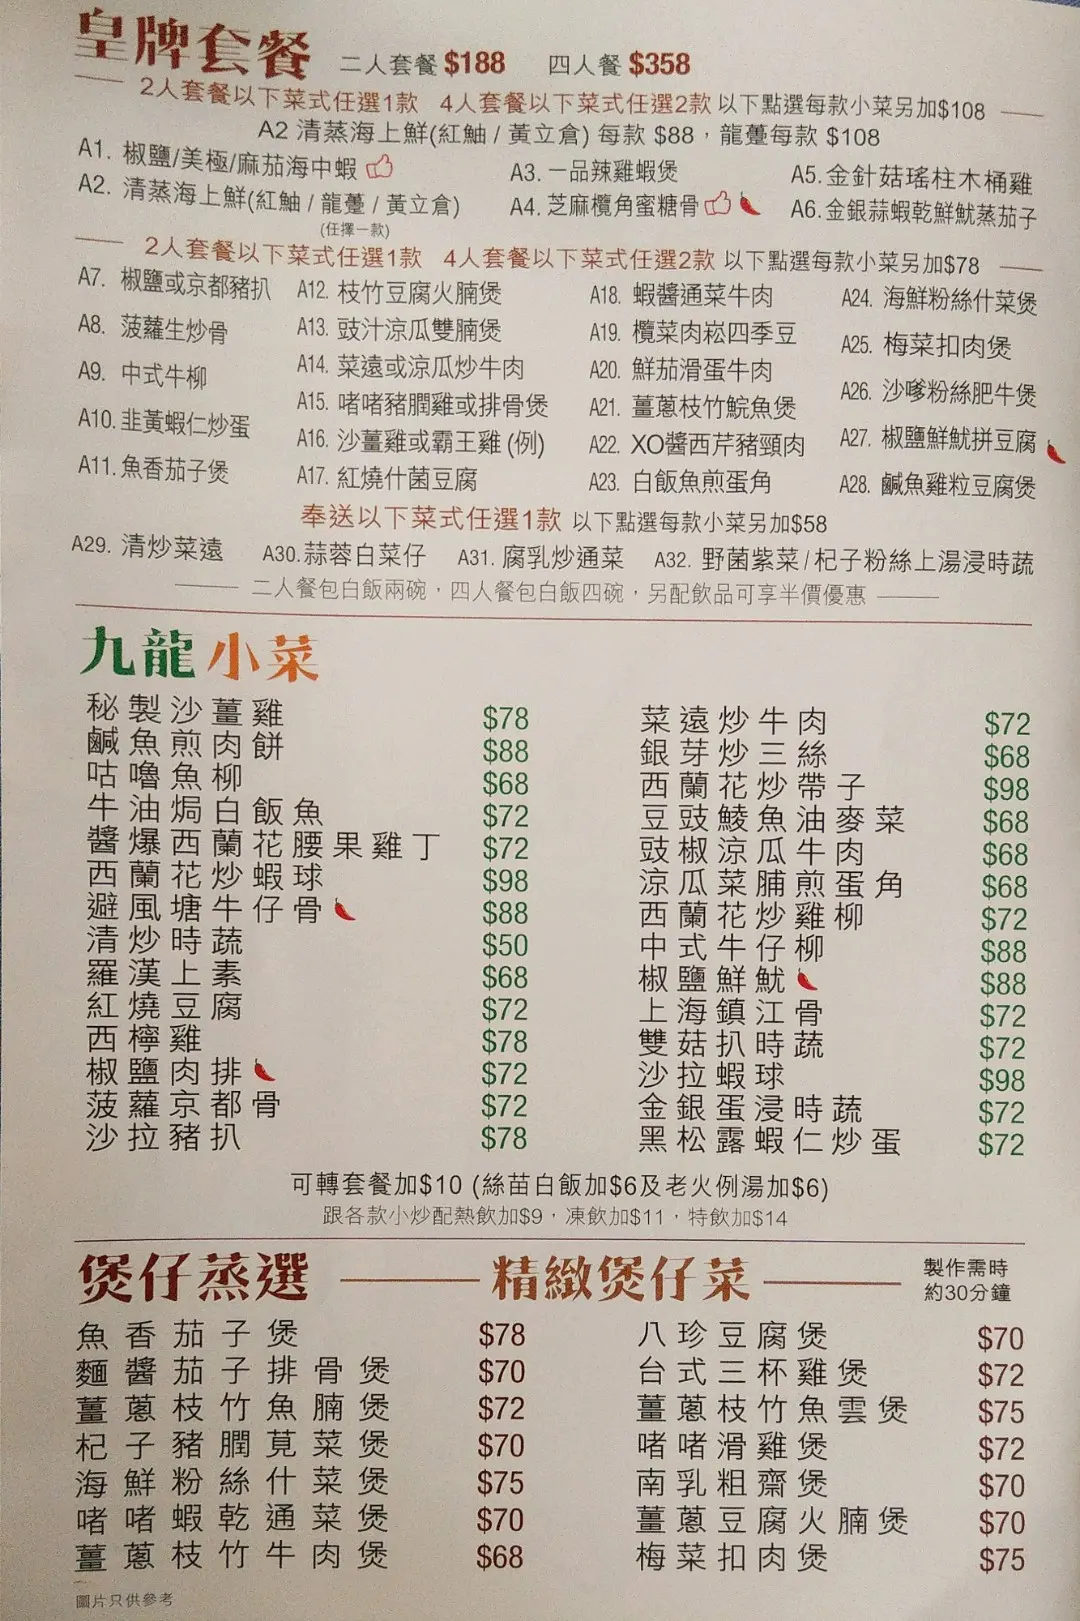 皇牌套餐 二人套餐 $188 四人餐 $358
2人套餐以下菜式任選1款 4人套餐以下菜式任選2款 以下點選每款小菜另加$108
A2 清蒸海上鮮(紅鮋 / 黃立倉) 每款 $88，龍躉每款 $108
A1. 椒鹽/美極/麻茄海中蝦
A2. 清蒸海上鮮(紅鮋 / 龍躉 / 黃立倉)
(任擇一款)
A3. 一品辣雞蝦煲
A4. 芝麻欖角蜜糖骨
A5. 金針菇瑤柱木桶雞
A6. 金銀蒜蝦乾鮮魷蒸茄子
2人套餐以下菜式任選1款 4人套餐以下菜式任選2款 以下點選每款小菜另加$78
A7. 椒鹽或京都豬扒
A8. 菠蘿生炒骨
A9. 中式牛柳
A10. 韭黃蝦仁炒蛋
A11. 魚香茄子煲
A12. 枝竹豆腐火腩煲
A13. 豉汁涼瓜雙腩煲
A14. 菜遠或涼瓜炒牛肉
A15. 啫啫豬膶雞或排骨煲
A16. 沙薑雞或霸王雞 (例)
A17. 紅燒什菌豆腐
A18. 蝦醬通菜牛肉
A19. 欖菜肉崧四季豆
A20. 鮮茄滑蛋牛肉
A21. 薑蔥枝竹鯇魚煲
A22. XO醬西芹豬頸肉
A23. 白飯魚煎蛋角
A24. 海鮮粉絲什菜煲
A25. 梅菜扣肉煲
A26. 沙嗲粉絲肥牛煲
A27. 椒鹽鮮魷拼豆腐
A28. 鹹魚雞粒豆腐煲
奉送以下菜式任選1款 以下點選每款小菜另加$58
A29. 清炒菜遠 A30. 蒜蓉白菜仔 A31. 腐乳炒通菜 A32. 野菌紫菜/杞子粉絲上湯浸時蔬
二人餐包白飯兩碗，四人餐包白飯四碗，另配飲品可享半價優惠
九龍小菜
秘製沙薑雞 $78
鹹魚煎肉餅 $88
咕嚕魚柳 $68
牛油焗白飯魚 $72
醬爆西蘭花腰果雞丁 $72
西蘭花炒蝦球 $98
避風塘牛仔骨 $88
清炒時蔬 $50
羅漢上素 $68
紅燒豆腐 $72
西檸雞 $78
椒鹽肉排 $72
菠蘿京都骨 $72
沙拉豬扒 $78
菜遠炒牛肉 $72
銀芽炒三絲 $68
西蘭花炒帶子 $98
豆豉鯪魚油麥菜 $68
豉椒涼瓜牛肉 $68
涼瓜菜脯煎蛋角 $68
西蘭花炒雞柳 $72
中式牛仔柳 $88
椒鹽鮮魷 $88
上海鎮江骨 $72
雙菇扒時蔬 $72
沙拉蝦球 $98
金銀蛋浸時蔬 $72
黑松露蝦仁炒蛋 $72
可轉套餐加$10 (絲苗白飯加$6及老火例湯加$6)
跟各款小炒配熱飲加$9，凍飲加$11，特飲加$14
煲仔蒸選 精緻煲仔菜 製作需時
約30分鐘
魚香茄子煲 $78
麵醬茄子排骨煲 $70
薑蔥枝竹魚腩煲 $72
杞子豬膶莧菜煲 $70
海鮮粉絲什菜煲 $75
啫啫蝦乾通菜煲 $70
薑蔥枝竹牛肉煲 $68
八珍豆腐煲 $70
台式三杯雞煲 $72
薑蔥枝竹魚雲煲 $75
啫啫滑雞煲 $72
南乳粗齋煲 $70
薑蔥豆腐火腩煲 $70
梅菜扣肉煲 $75
圖片只供參考